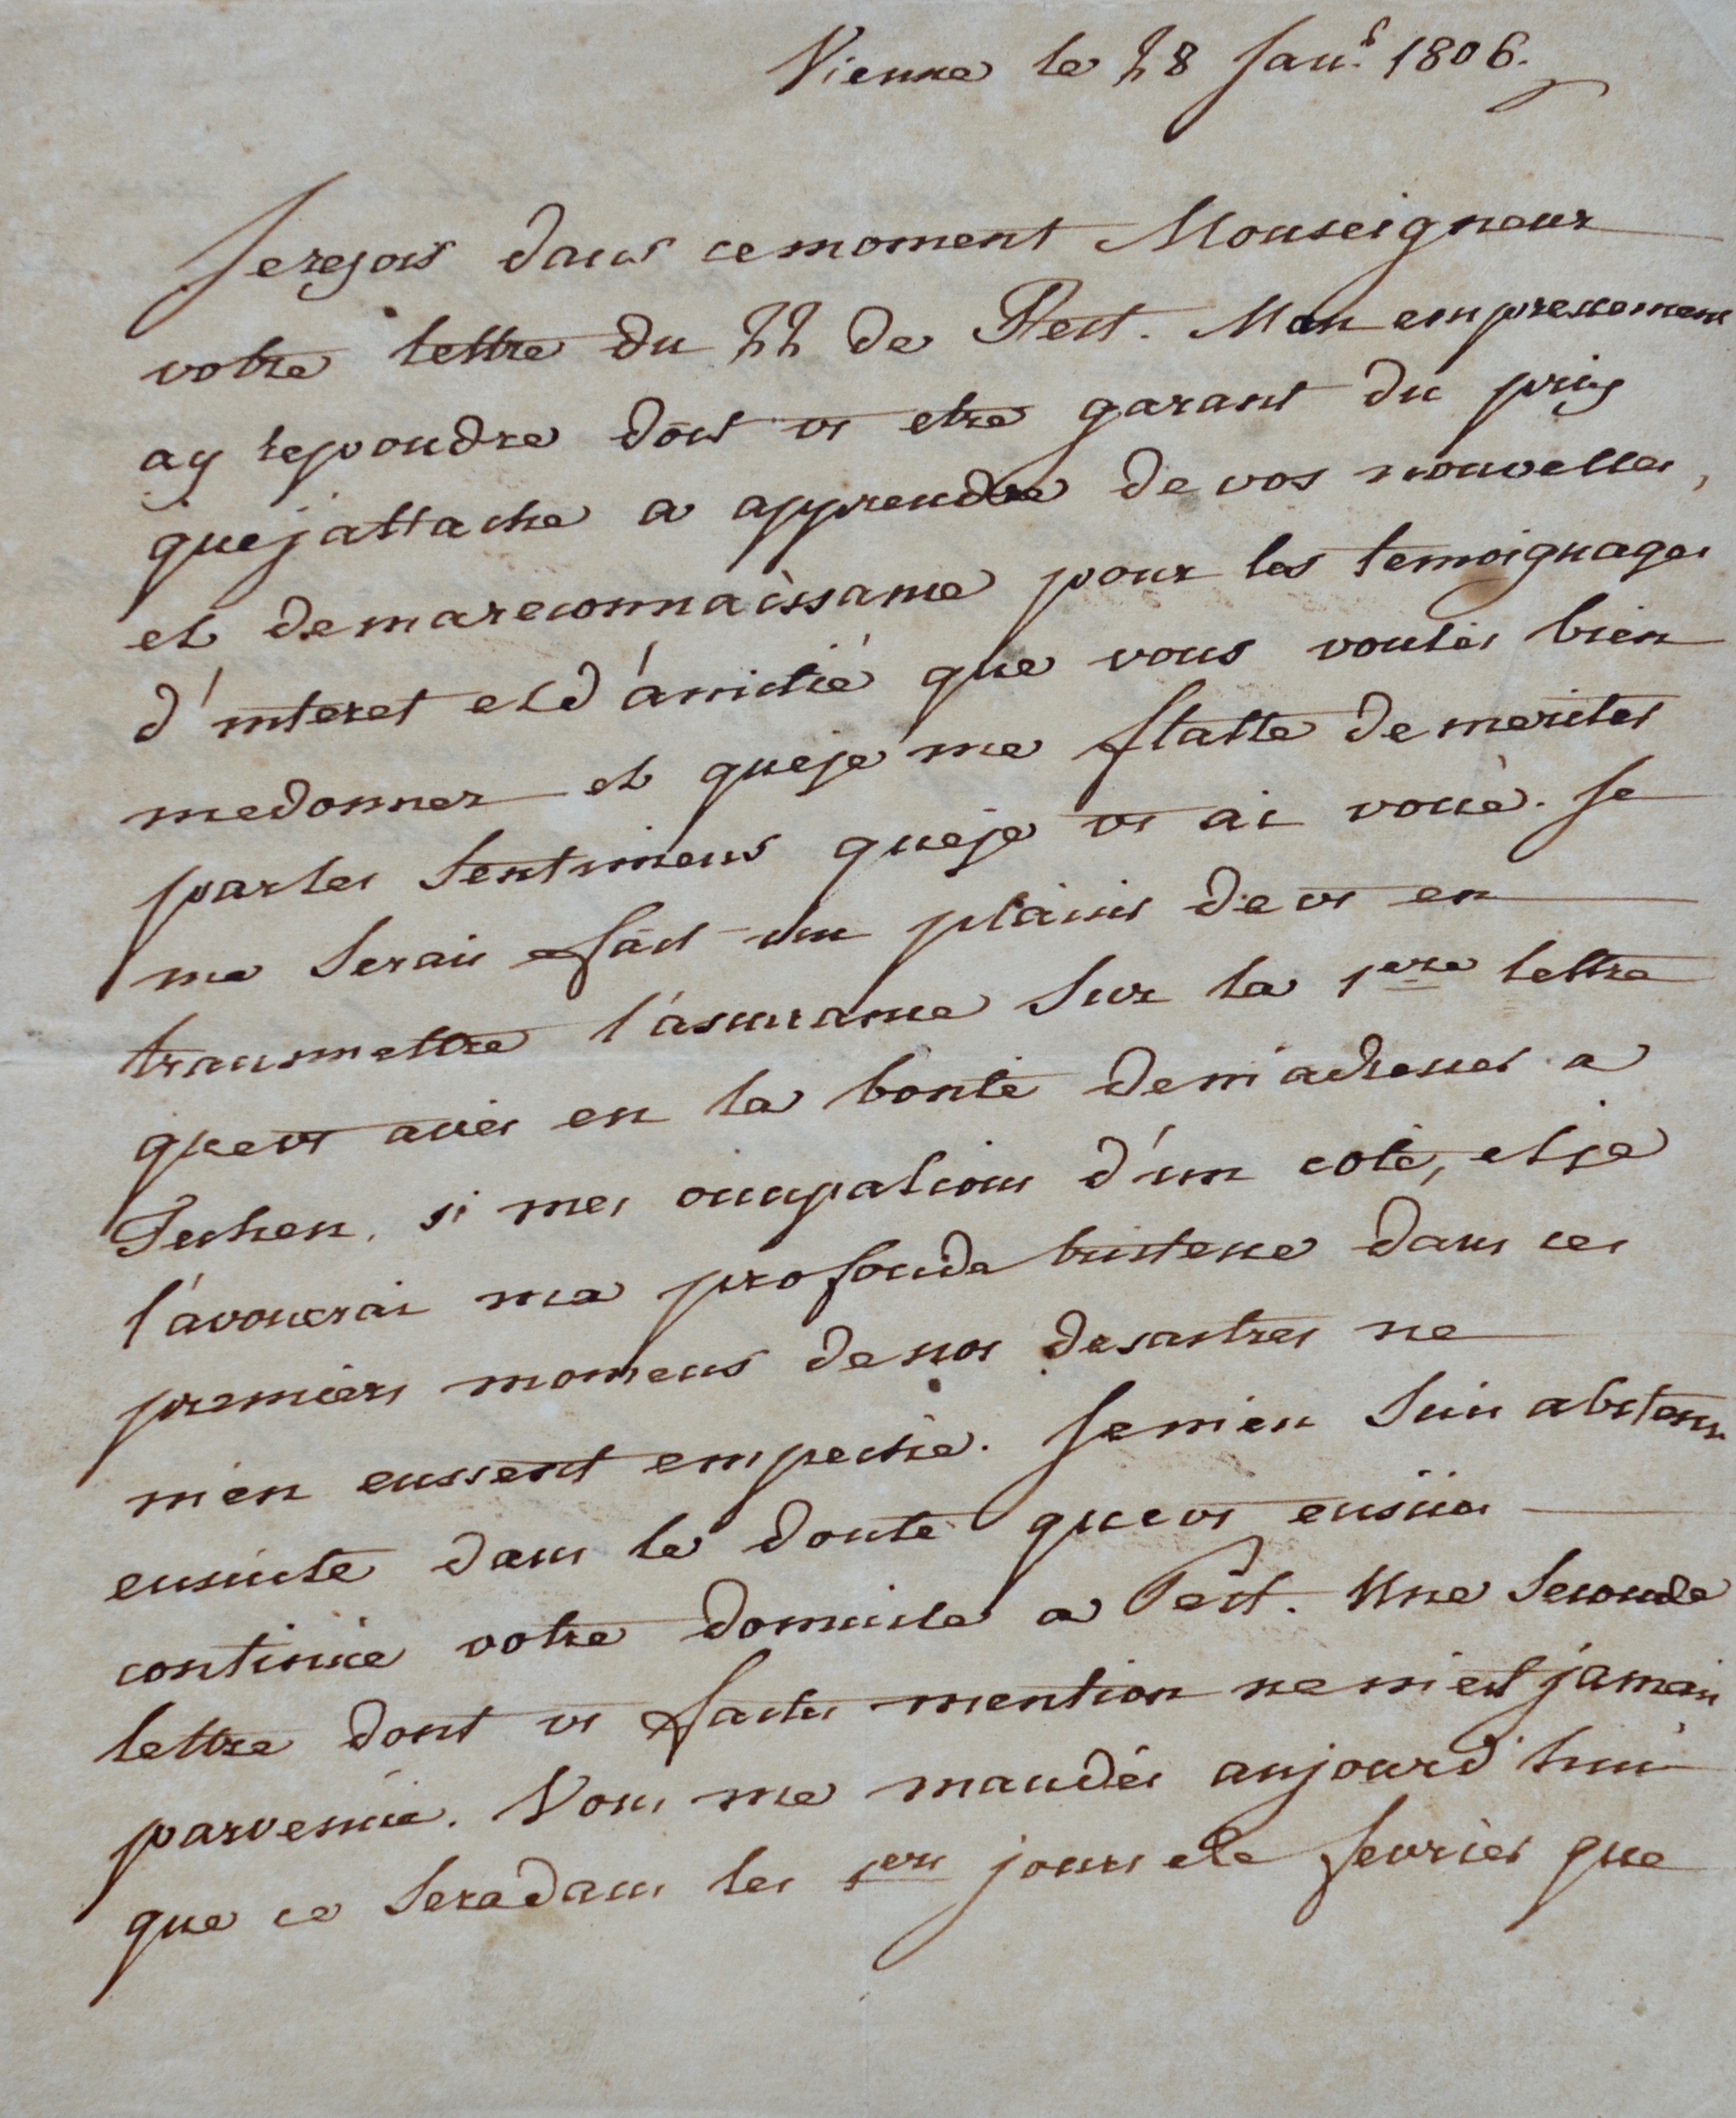 Vienne le 28 Janr. 1806.
Je reçois dans ce moment Monseigneur
votre lettre du 22 de Pest. Mon empressement
a y repondre doit vs etre garant du prix
que j attache a apprendre de vos nouvelles,
et de ma reconnaissance pour les temoignages
d'interet et d'amitié que vous voulés bien
me donner et que je me flatte de meriter
par les sentimens que je vs ai voué. Je
me serais fait un plaisir de vs en
transmettre l'assurance sur la 1ere lettre
que vs aviés eu la bonté de m'adresser a
si mes occupations d'un coté, et je
l'avouerai ma profonde tristesse dans ces
premiers momens de nos desastres ne
m'en eussent empeché. Je m'en suis abstenu
ensuite dans le doute que vs eussiés
continué votre domicile a Pest. Une seconde
lettre dont vs faites mention ne m'est jamais
parvenue. Vous me mandés aujourd'hui
que ce sera dans les 1ers jours de fevrier que